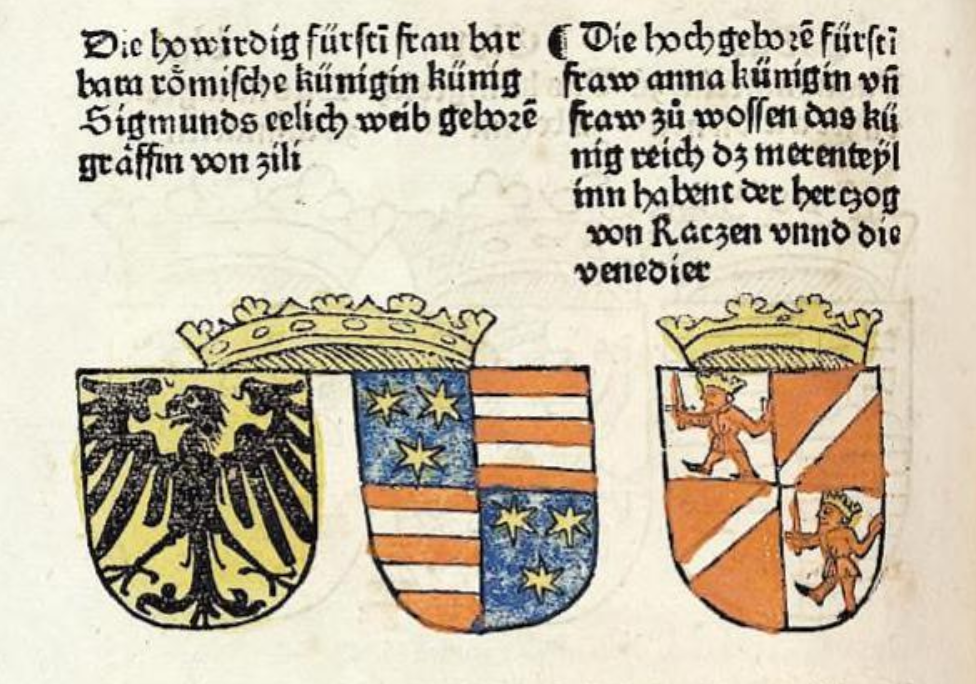 Die howirdig fürstī frau bar
bara rômische künigin künig
Sigmunds eelich weib geborē
grâffin von zili
¶ Die hochgeborē fürsti
fraw anna künigin vñ
fraw zů wossen das kü
nig reich dz merenteÿl
inn habent der herczog
von Raczen vnnd die
venedier